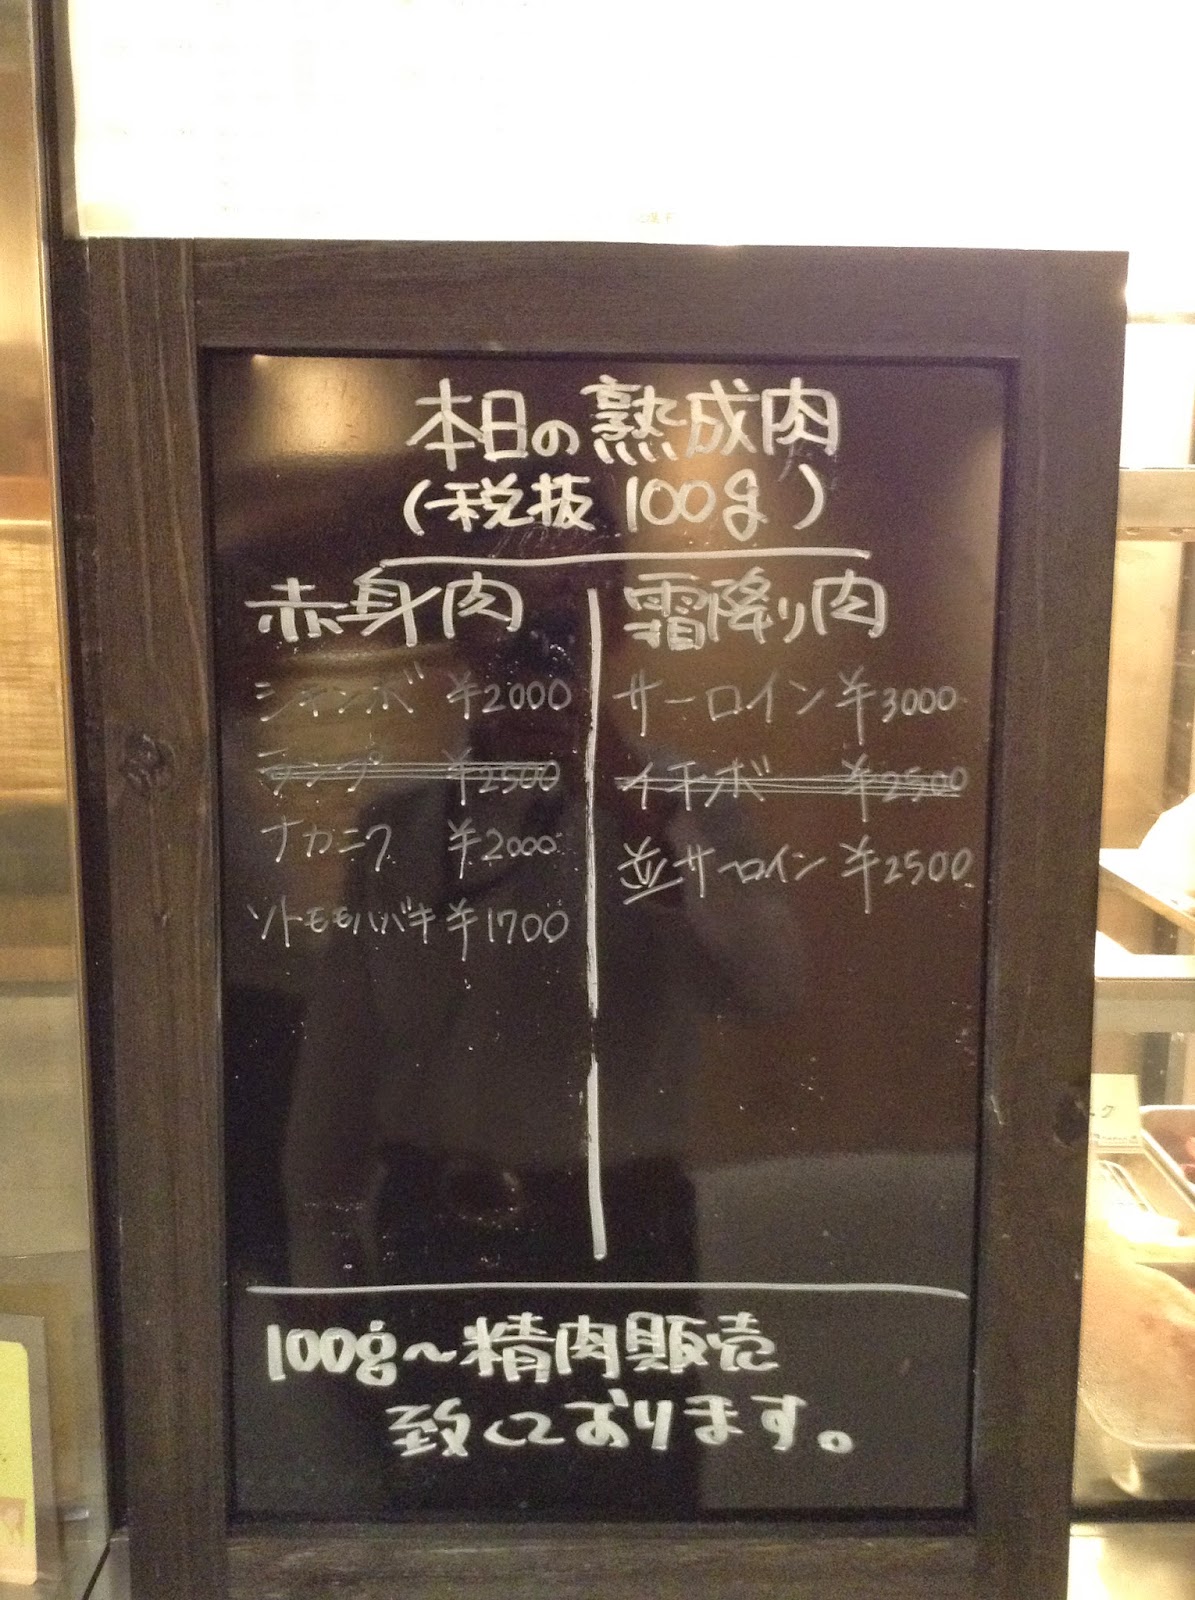 本日の熟成肉
(税抜 100g)
赤身肉
シキンボ ¥2000
ランプ ¥2500
ナカニク ¥2000
ソトモモハバキ ¥1700
霜降り肉
サーロイン ¥3000
イチボ ¥2500
並サーロイン ¥2500
100g~精肉販売
致しております。